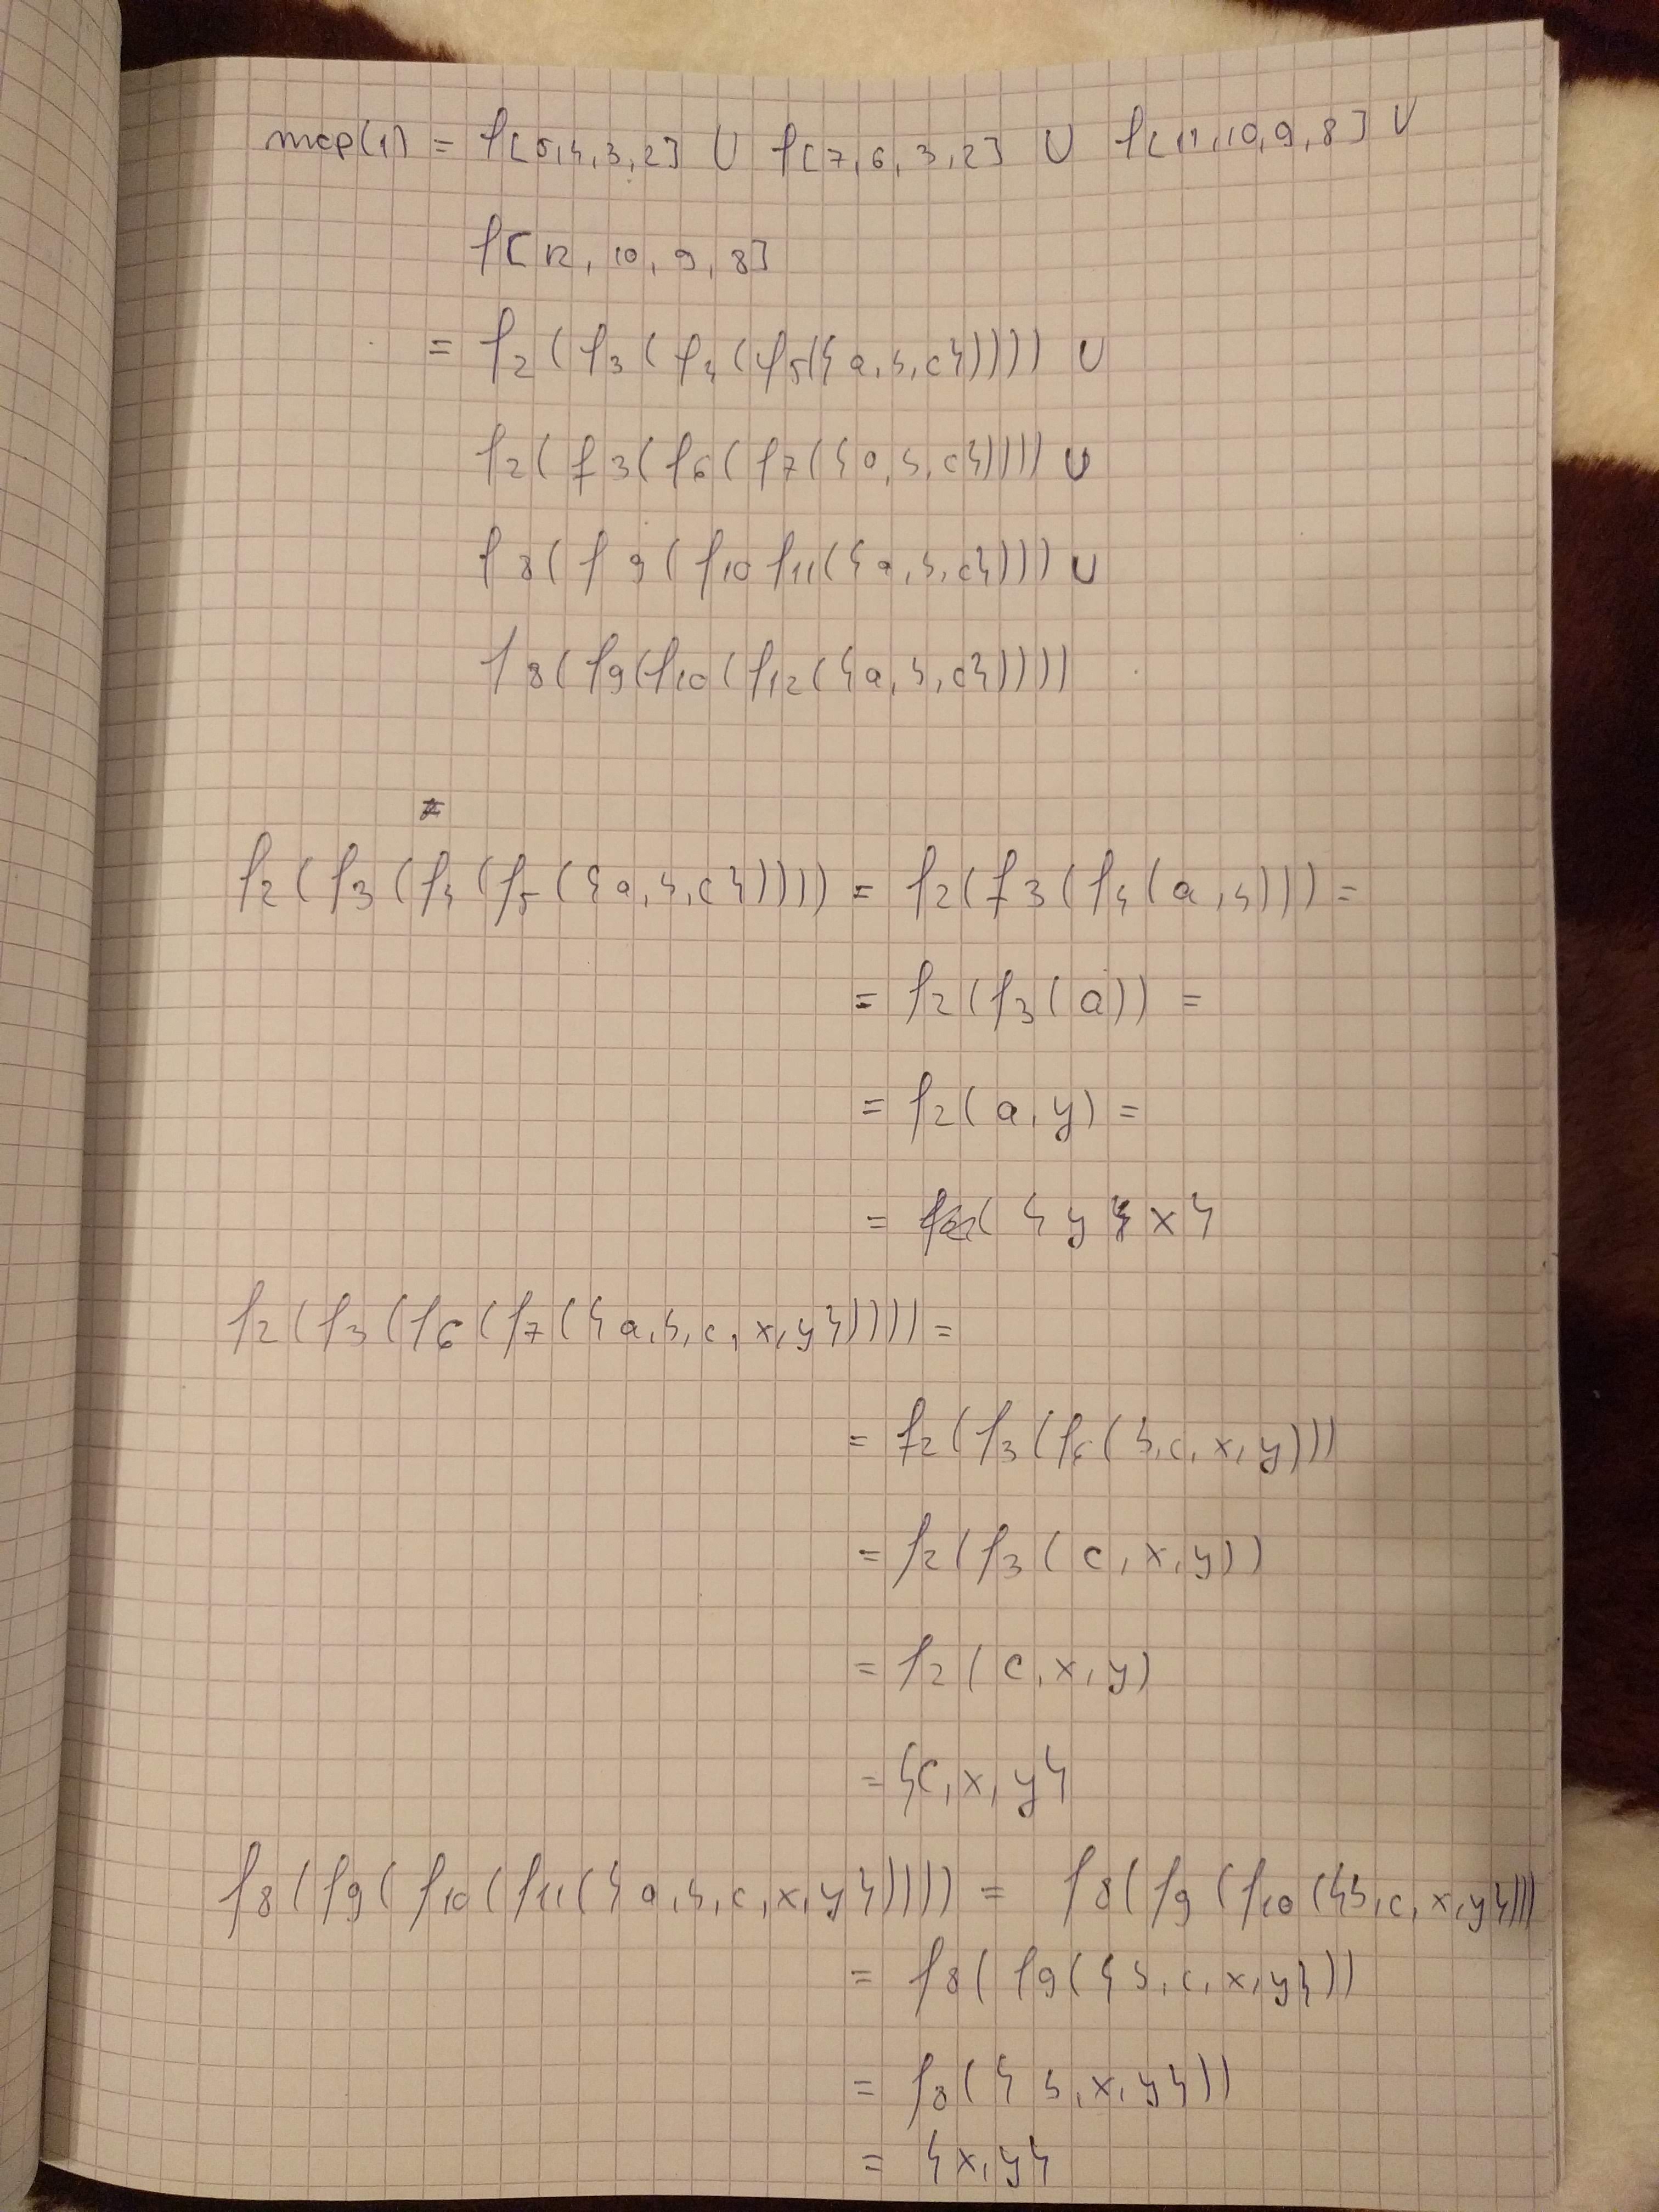 mop(1) = f[5,4,3,2] ∪ f[7,6,3,2] ∪ f[11,10,9,8] ∪
f[12,10,9,8]
= f2(f3(f4(f5({a,b,c})))) ∪
f2(f3(f6(f7({a,b,c})))) ∪
f8(f9(f10 f11({a,b,c}))) ∪
f8(f9(f10(f12({a,b,c}))))
f2(f3(f4(f5({a,b,c})))) = f2(f3(f4(a,b))) =
= f2(f3(a)) =
= f2(a,y) =
= { y, x }
f2(f3(f6(f7({a,b,c,x,y})))) =
= f2(f3(f6(b,c,x,y)))
= f2(f3(c,x,y))
= f2(c,x,y)
= {c,x,y}
f8(f9(f10(f11({a,b,c,x,y})))) = f8(f9(f10({b,c,x,y})))
= f8(f9({b,c,x,y}))
= f8({b,x,y}))
= {x,y}